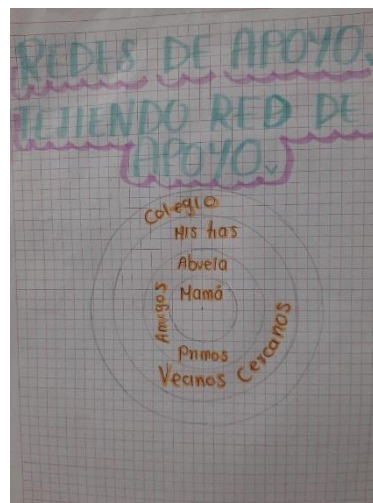 REDES DE APOYO.
TEJIENDO RED DE
APOYO.
Colegio
Mis tias
Abuela
Mamá
Amigos
Primos
Vecinos Cercanos